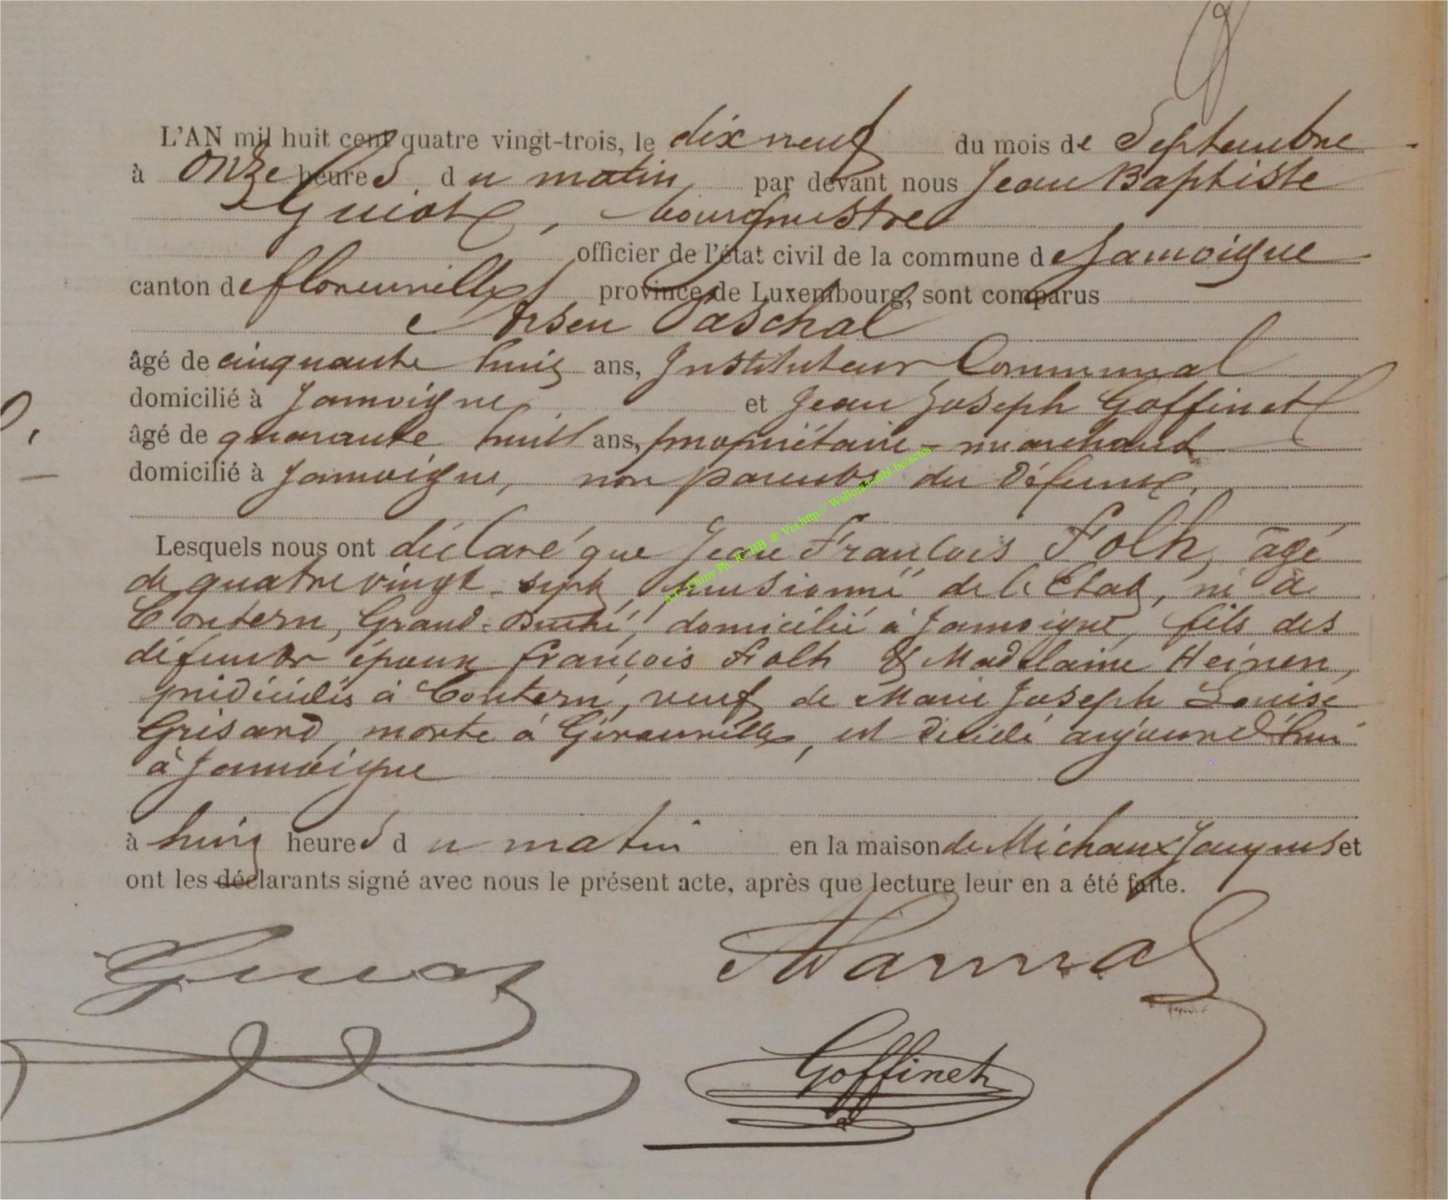 L'AN mil huit cent quatre vingt-trois, le dix neuf du mois de Septembre
à onze heures du matin par devant nous Jean Baptiste
Guiot, bourgmestre
officier de l'état civil de la commune de Jamoigne
canton de florenville province de Luxembourg, sont comparus
Arsen Paschal
âgé de cinquante huit ans, Instituteur Communal
domicilié à Jamoigne et Jean Joseph Goffinet
âgé de quarante huit ans, propriétaire - marchand
domicilié à Jamoigne, non parents du Défunt.
Lesquels nous ont déclaré que Jean François Folh, âgé
de quatre vingt-sept, pensionné de l'Etat, né à
Contern, Grand-Duché, domicilié à Jamoigne, fils des
défunts époux françois Folh & Madelaine Heinen,
prédécédés à Contern, veuf de Marie Joseph Louise
Grisard, morte à Gérouville, est décédé aujourd'hui
à Jamoigne
à huit heures du matin en la maison de Michaux Jacques et
ont les déclarants signé avec nous le présent acte, après que lecture leur en a été faite.
Guiot
Goffinet